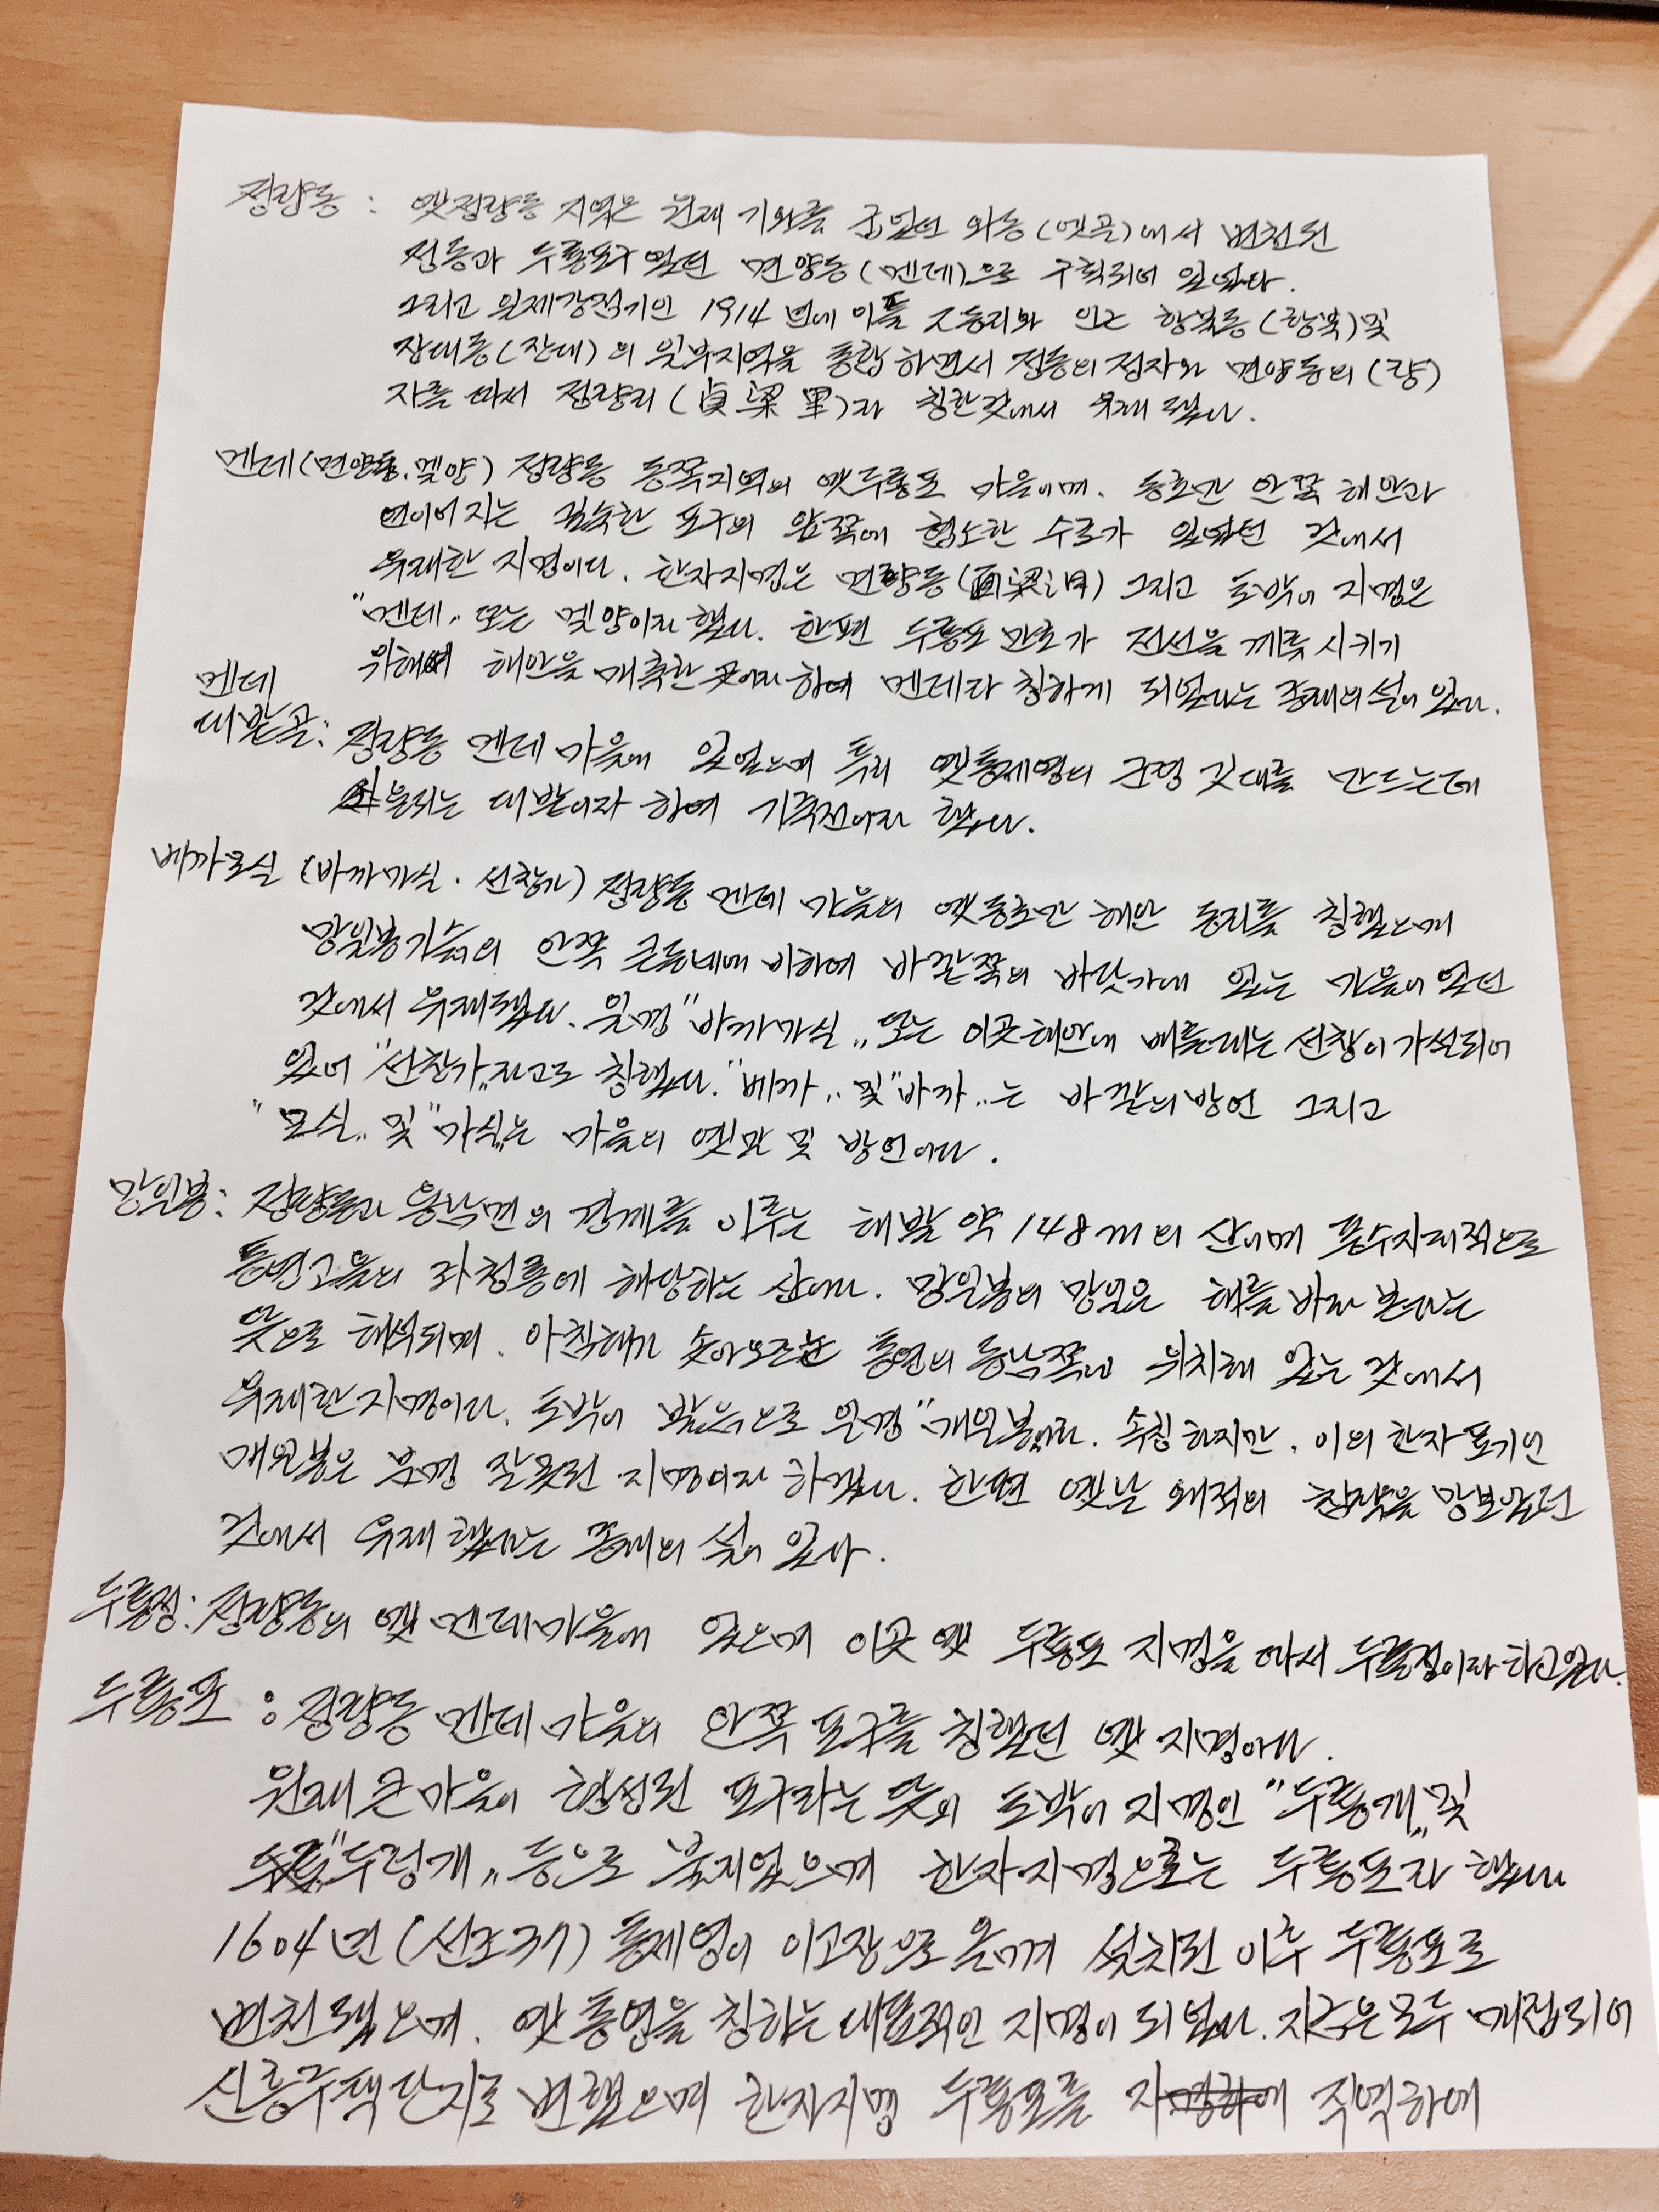 정량동 : 옛정량동 지역은 원래 기와를 구웠던 와동(엣골)에서 변천된
정동과 두룡포구 였던 면양동(멘데)으로 구획되어 있었다.
그리고 일제강점기인 1914년에 이들 두동리와 인근 항북동(항북)및
장대동(잔대)의 일부지역을 통합하면서 정동의 정자와 면양동의 (량)
자를 따서 정량리(貞梁里)라 칭한것에서 유래 했다.
멘데(면양동. 멫양) 정량동 동쪽지역의 옛두룡포 마을이며. 동호만 안쪽 해안과
연이어 지는 길숙한 포구의 앞쪽에 협소한 수로가 있었던 것에서
유래한 지명이다. 한자지명은 면량동(面梁洞) 그리고 토박이 지명은
"멘데" 또는 멫양이라 했다. 한편 두룡포 만호가 전선을 계류 시키기
위해서 해안을 매축한 곳이라 하여 멘데라 칭하게 되었다는 중래의 설이 있다.
멘데
대밭골: 정량동 멘데 마을에 있었으며 특히 옛통제영의 군영 깃대를 만드는데
쓰는 대밭이라 하여 기죽전이라 했다.
베까모실 (바까마실. 선창가) 정량동 멘데 마을의 옛동호만 해안 동리를 칭했으며
망일봉기슭의 안쪽 큰동네에 비하여 바깥쪽의 바닷가에 있는 마을이 있던
것에서 유래했다. 일명 "바까마실" 또는 이곳해안에 배를대는 선창이 가설되어
있어 "선창가"라고도 칭했다. "베까" 및 "바까"는 바깥의 방언 그리고
"모실" 및 "마실"는 마을의 옛말 및 방언이다.
망일봉: 정량동과 용남면의 경계를 이루는 해발 약 148m의 산이며 풍수지리적으로
통영고을의 좌청룡에 해당하는 산이다. 망일봉의 망일은 해를 바라 본다는
뜻으로 해석되며. 아침해가 솟아오르는 통영의 동남쪽에 위치해 있는 것에서
유래한 지명이다. 토박이 발음으로 일명 "매일봉"이라. 속칭 하지만. 이의 한자 표기인
매일봉은 분명 잘못된 지명이라 하겠다. 한편 옛날 왜적의 침략을 망보았던
것에서 유래 했다는 중래의 설이 있다.
두룡정: 정량동의 옛 멘데마을에 있으며 이곳 옛 두룡포 지명을 따서 두룡정이라 하고있다.
두룡포 : 정량동 멘데 마을의 안쪽 포구를 칭했던 옛 지명이다.
원래 큰마을이 형성된 포구라는 뜻의 토박이 지명인 "두룡개" 및
"두렁개" 등으로 불리었으며 한자지명으로는 두룡포라 했다
1604년(선조37) 통제영이 이고장으로 옮겨 설치된 이후 두룡포로
변천 했으며. 옛 통영을 칭하는 대표적인 지명이 되었다. 지금은 모두 매립되어
신흥주택단지로 변했으며 한자지명 두룡포를 직역하여